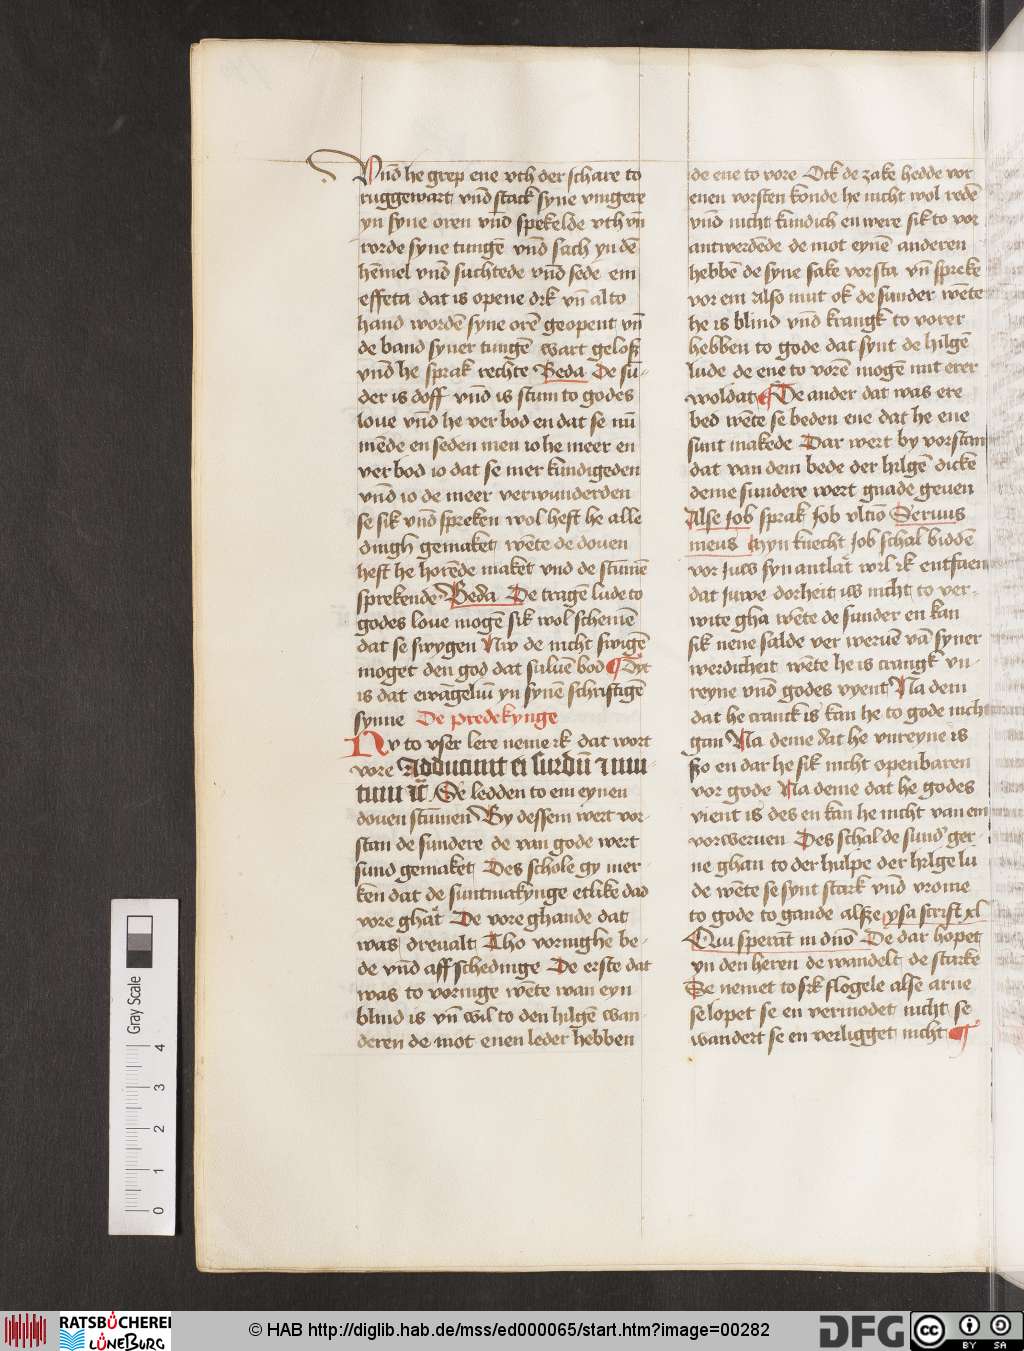 Vnd he grep ene vth der schare to
ruggewart vnd stack syne vingere
yn syne oren vnd spekelde vth vn̄
rorde syne tungē vnd sach yn dē
hēmel vnd suchtede vnd sede em
effeta dat is opene dik vn̄ al to
hand wordē syne orē geopent vn̄
de band syner tungē wart geloſz
vnd he sprak rechte Beda De sū-
der is doff vnd is stum to godes
loue vnd he ver bod en dat se nū
mēde en seden men io he meer en
ver bod io dat se mer kundigeden
vnd io de meer verwunderden
se sik vnd spreken wol heft he alle
dingh gemaket wēte de douen
heft he horēde maket vnd de stūmē
sprekende Beda De tragē lude to
godes loue mogē sik wol schemē
dat se swygen Nw de nicht swigē
moget den god dat suluē bod ¶ Dyt
is dat ewāgeliū yn synē schriftigē
synne De predekynge
Nv to vser lere neme ik dat wort
vore Adducunt ei surdū ⁊ mu
tum ⁊c̄ Se ledden to em eynen
douen stūmen By dessem wert vor-
stan de sundere de van gode wert
sund gemaket Des schole gy mer-
ken dat de suntmakynge etlike dad
vore ghāt De vore ghande dat
was dreualt Tho voringhe be-
de vnd aff schedinge De erste dat
was to voringe wēte wan eyn
blind is vn̄ wil to den hilgē wan-
deren de mot enen leder hebben
de ene to vore Ock de zake hedde vor
enen vorsten konde he nicht wol redē
vnd nicht kundich en were sik to vor
antwerdēde de mot eynē anderen
hebbē de syne sake vorsta vn̄ spreke
vor em Also mut ok de sunder wēte
he is blind vnd krangk to vorer
hebben to gode dat synt de hilgē
lude de ene to vorē mogē mit erer
woldat ¶ De ander dat was ere
bed wēte se beden ene dat he ene
sunt makede Dar wert by vorstan
dat van dem bede der hilgē dicke
deme sundere wert gnade geuen
Alse Job sprak Job vltiō Seruus
meus Myn knecht Job schal biddē
vor juw syn antlāt wil ik entfaen
dat juwe dorheit iw nicht to ver-
wite gha wēte de sunder en kan
sik nene salde ver weruē vā syner
werdicheit wēte he is crangk vn-
reyne vnd godes vyent Na dem
dat he cranck is kan he to gode nicht
gan Na deme dat he vnreyne is
ſzo en dar he sik nicht openbaren
vor gode Na deme dat he godes
vient is des en kan he nicht van em
vorweruen Des schal de sund' ger-
ne ghan to der hulpe der hilge lu
de wēte se synt stark vnd vrome
to gode to gande alſze ysa scrift xl
Qui sperāt in dn̄o De dar hopet
yn den heren de wandelt de starke
Se nemet to sik flogele alse arne
se lopet se en vermodet nicht se
wandert se en verligget nicht ¶
Gray Scale
0 1 2 3 4
RATSBÜCHEREI
LÜNEBURG
© HAB http://diglib.hab.de/mss/ed000065/start.htm?image=00282
DFG
cc BY SA